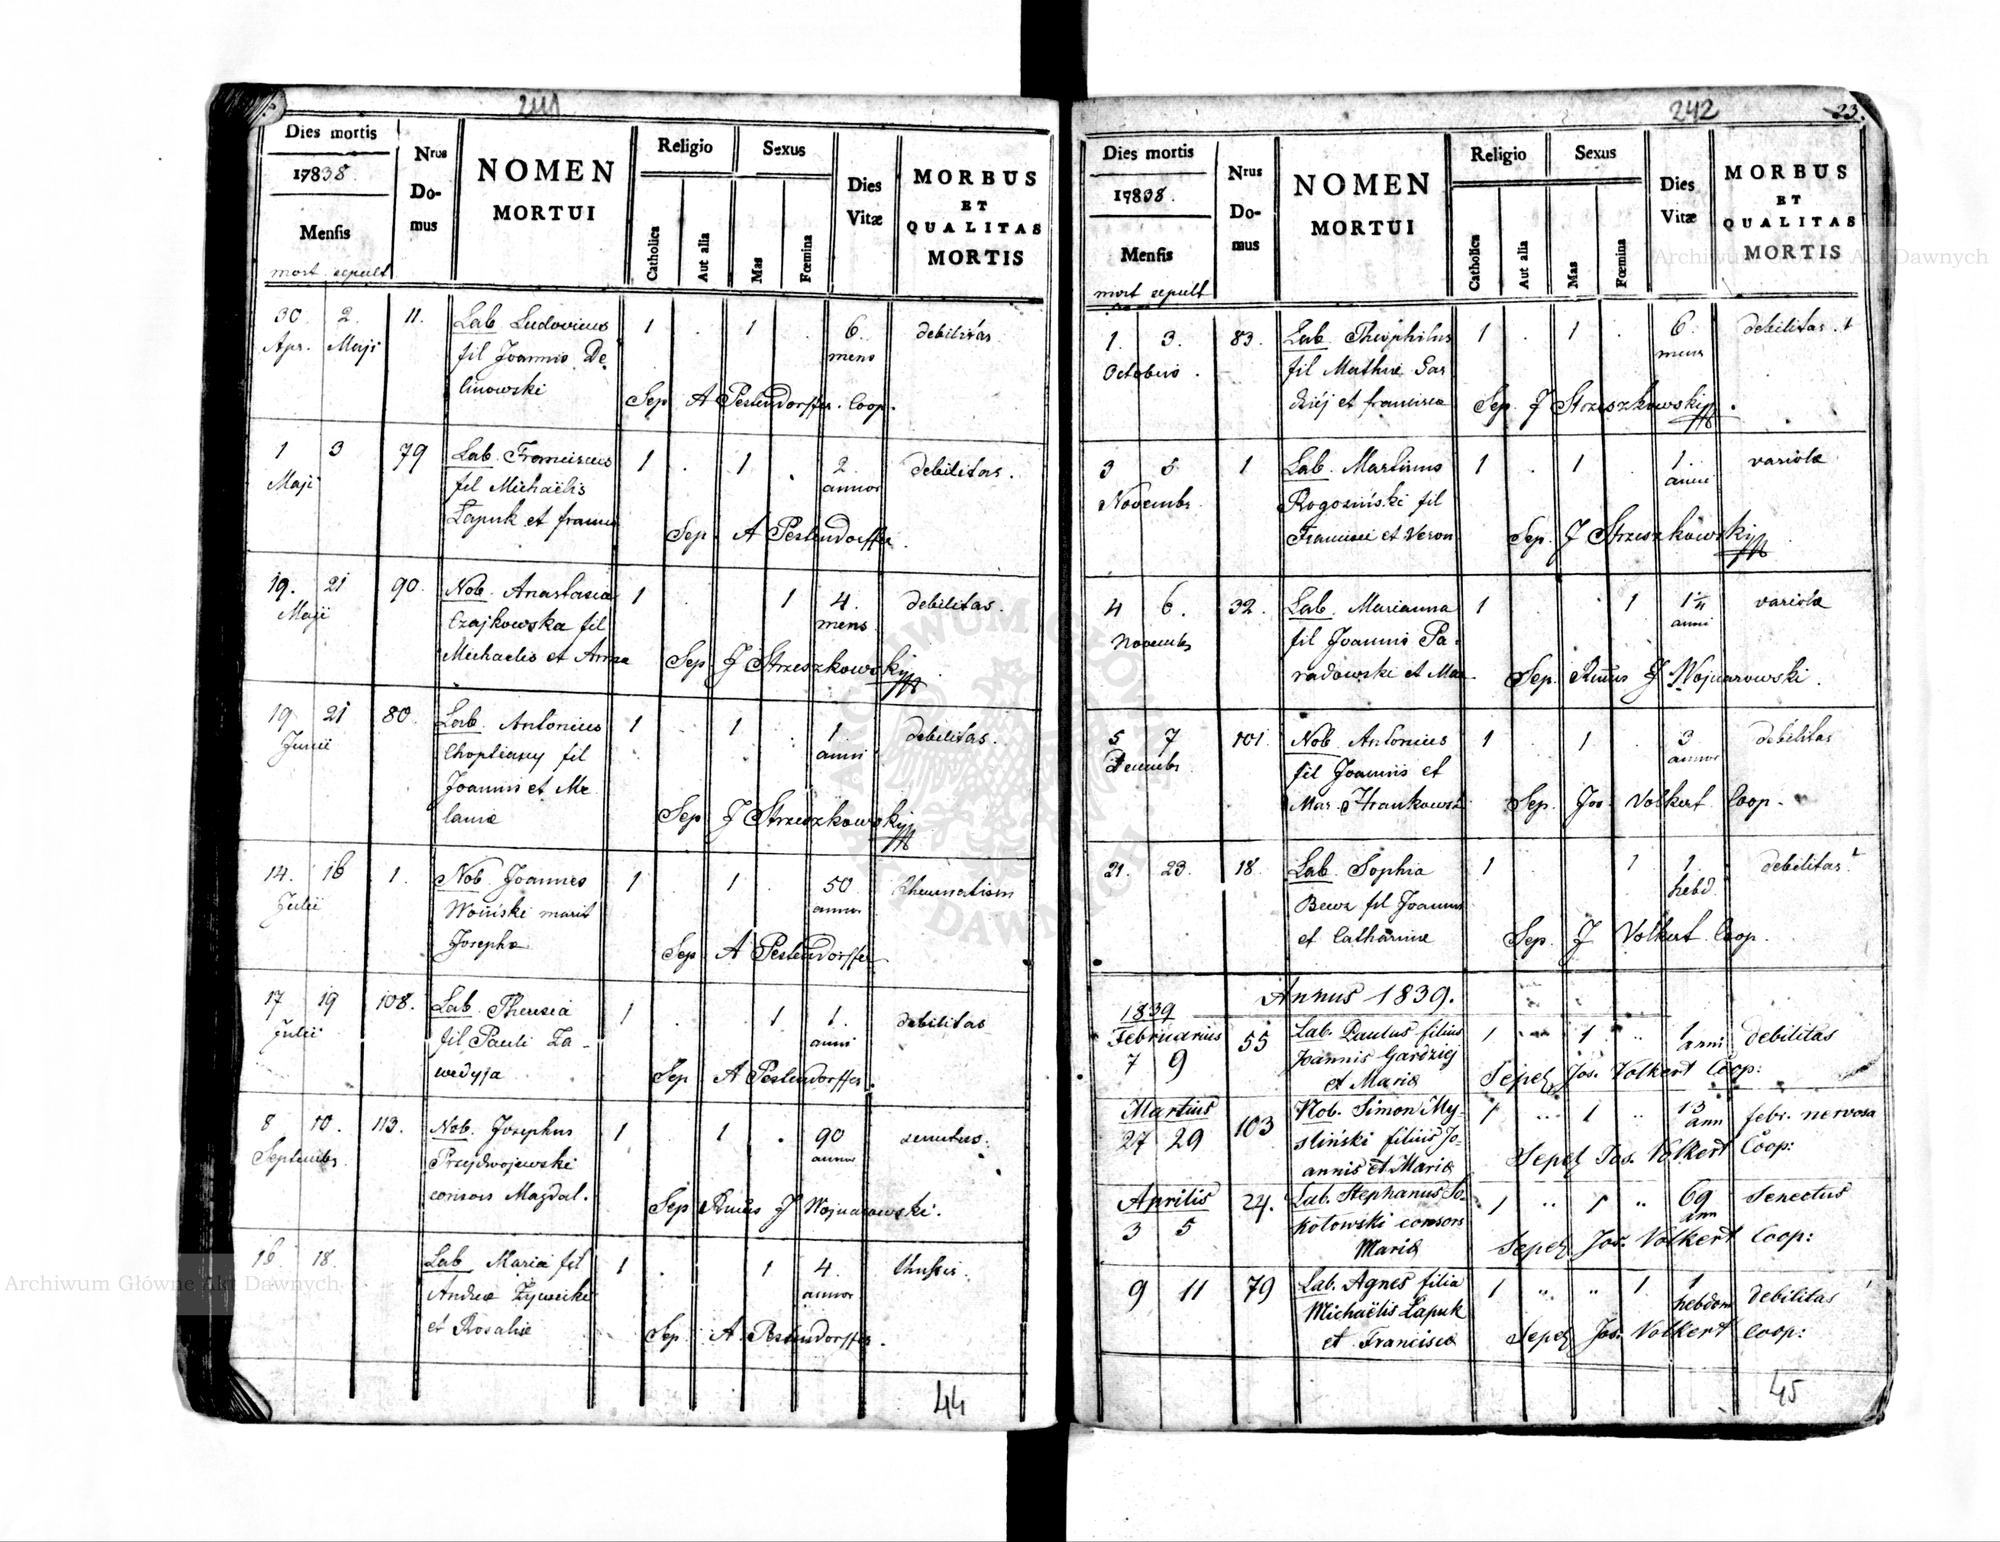 241
Dies mortis
17838.
Mensis
mort sepult
Nrus
Do-
mus
NOMEN
MORTUI
Religio
Catholica
Aut alia
Sexus
Mas
Fœmina
Dies
Vitæ
MORBUS
ET
QUALITAS
MORTIS
30. 2. 11. Lab. Ludovicus 1 . 1 . 6. debilitas
Apr. Maji fil Joannis De mens
linowski Sep A Pestendorffer. Coop.
1 3 79 Lab. Franciscus 1 . 1 . 2. debilitas.
Maji fil Michaëlis annor
Łapuk et franc Sep A Pestendorffer.
19. 21 90. Nob. Anastasia 1 . . 1 4. debilitas.
Maji Czajkowska fil mens
Michaelis et Anna Sep J Strzeszkowskij
19 21 80. Lab. Antonius 1 . 1 . 1 debilitas.
Junii fil anni
Joannis et Me
lania Sep J Strzeszkowskij
14. 16 1. Nob. Joannes 1 . 1 . 50 Rheumatism
Julii Woiński marit annor
Josepha Sep A Pestendorffer
17 19 108. Lab. Theresia 1 . . 1 1. debilitas
Julii fil Pauli Za- anni
wedyja Sep A Pestendorffer.
8 10. 113. Nob. Josephus 1 1 . 90 senectus.
Septembr. Przejdwojewski annor
consors Magdal. Sep Rmus J Wojnarowski.
16 18. Lab Maria fil 1 . 1 4. thussis.
Andreæ Żywicki annor
et Rosaliæ Sep A Pestendorffer.
44
242
23.
Dies mortis
17838.
Mensis
mort sepult
Nrus
Do-
mus
NOMEN
MORTUI
Religio
Catholica
Aut alia
Sexus
Mas
Fœmina
Dies
Vitæ
MORBUS
ET
QUALITAS
MORTIS
1. 3. 83. Lab. Theophilus 1 . 1 . 6. debilitas.
Octobris. fil Mathiæ Gar mens
dziéj et francisca Sep J Strzeszkowskij.
3 5 1 Lab. Martinus 1 . 1 1. variolæ
Novembr. Rogoziński fil anni
Francisci et Veron Sep. J Strzeszkowskij.
4 6. 32. Lab. Marianna 1 . . 1 1¼ variolæ
Novembr fil Joannis Pa- anni
radowski et Mar. Sep. Rmus J Wojnarowski.
5 7 101. Nob Antonius 1 . 1 . 3 debilitas
Decembr fil Joannis et annor
Mar. Hrankowski Sep. Jos Volkert Coop.
21. 23. 18. Lab. Sophia 1 1 1. debilitas
fil Joannis hebd
et Catharinæ Sep. J Volkert Coop.
Annus 1839.
1839
Februarius 55 Lab. Paulus filius 1 1 " 1 debilitas
7 9 Joannis Gardziej anni
et Mariæ Sepel Jos. Volkert Coop:
Martius 103 Nob. Simon My- 1 " 1 " 13 febr. nervosa
27 29 sliński filius Jo- ann
annis et Mariæ Sepel Jos. Volkert Coop:
Aprilis 24. Lab. Stephanus So- 1 " 1 " 69 Senectus
3 5 kołowski consors ann
Mariæ Sepel Jos. Volkert Coop:
9 11 79 Lab. Agnes filia 1 " " 1. 1 debilitas
Michaëlis Łapuk hebdom
et Franciscæ Sepel Jos. Volkert Coop:
45
Archiwum Główne Akt Dawnych
Archiwum Główne Akt Dawnych
ARCHIWUM GŁÓWNE AKT DAWNYCH